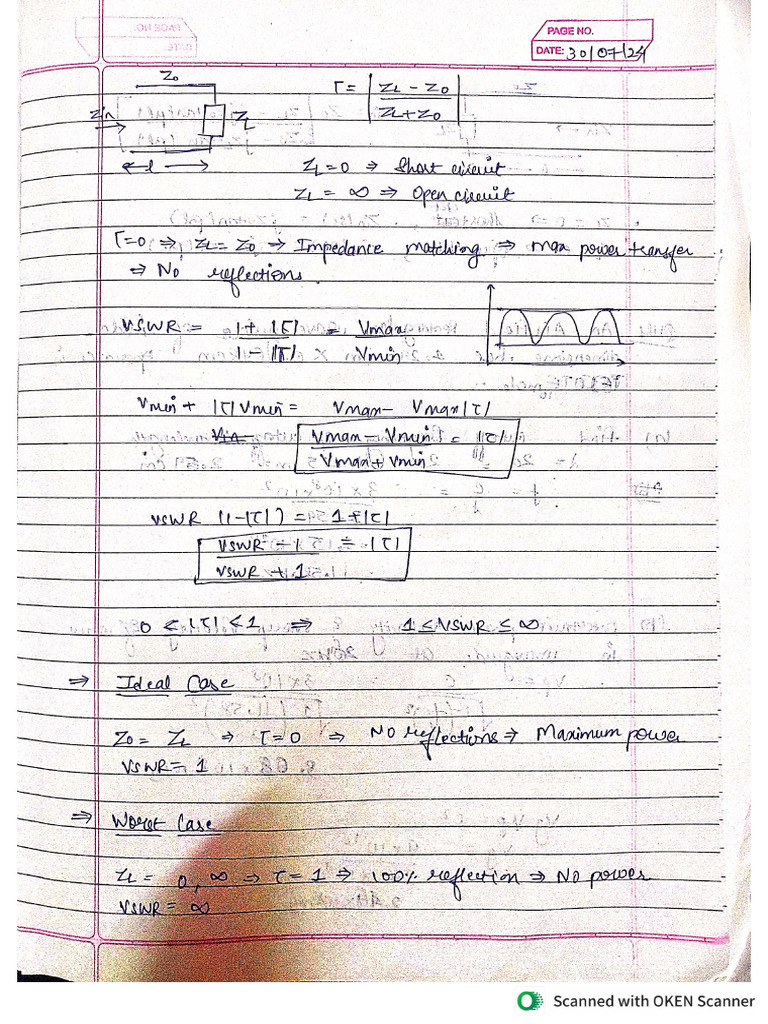 PAGE NO.
DATE: 30/07/24
Z₀
Zin
ZL
l
Γ = | ZL - Z₀ / ZL + Z₀ |
ZL = 0 ⇒ Short circuit
ZL = ∞ ⇒ Open circuit
Γ=0 ⇒ ZL = Z₀ ⇒ Impedance matching ⇒ max power transfer
⇒ No reflections.
VSWR = 1 + |Γ| / 1 - |Γ| = Vmax / Vmin
Vmin + |Γ| Vmin = Vmax - Vmax |Γ|
Vmax - Vmin / Vmax + Vmin = |Γ|
VSWR (1-|Γ|) = 1+|Γ|
VSWR - 1 / VSWR + 1 = |Γ|
0 ≤ |Γ| ≤ 1 ⇒ 1 ≤ VSWR ≤ ∞
⇒ Ideal Case
Z₀ = ZL ⇒ Γ=0 ⇒ No reflections ⇒ Maximum power
VSWR = 1
⇒ Worst Case
ZL = 0, ∞ ⇒ Γ = 1 ⇒ 100% reflection ⇒ No power
VSWR = ∞
Scanned with OKEN Scanner